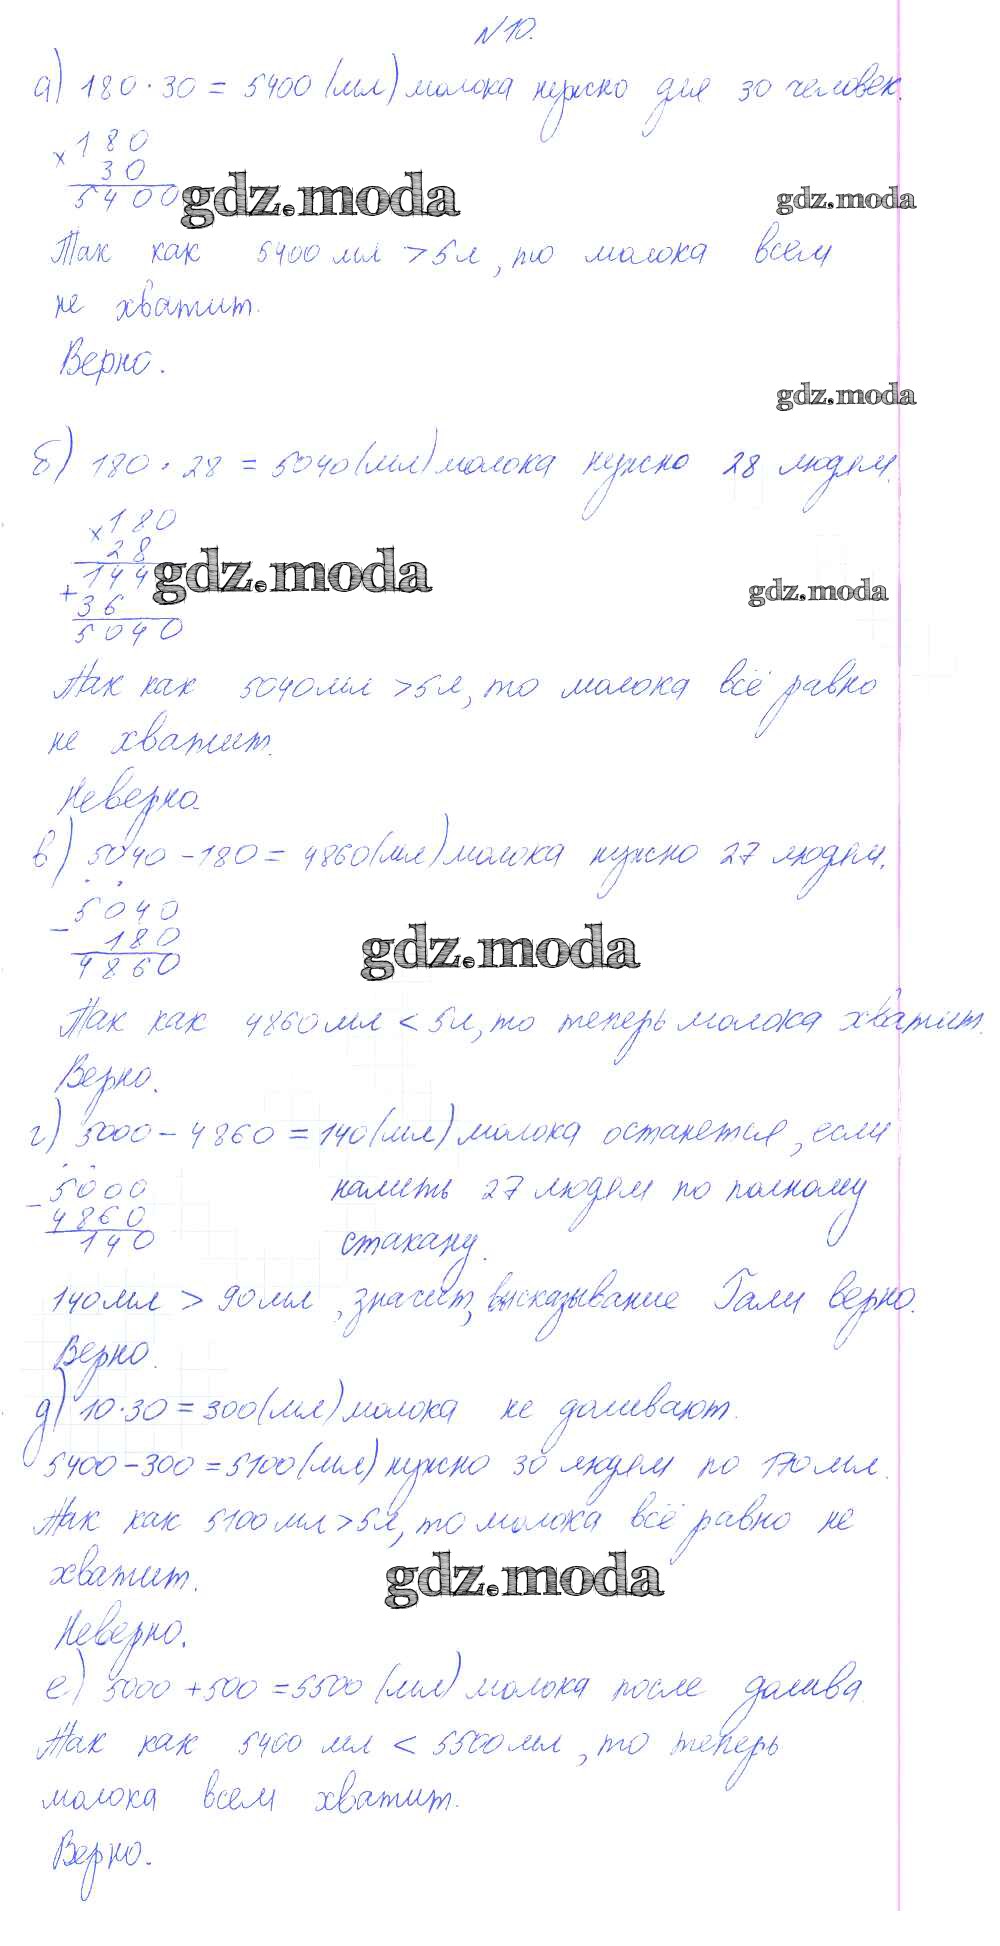 №10.
а) 180 · 30 = 5400 (мл) молока нужно для 30 человек.
× 180
30
5400
gdz.moda
gdz.moda
Так как 5400 мл > 5 л, то молока всем
не хватит.
Верно.
gdz.moda
б) 180 · 28 = 5040 (мл) молока нужно 28 людям.
× 180
28
+ 144
36
5040
gdz.moda
gdz.moda
Так как 5040 мл > 5 л, то молока всё равно
не хватит.
Неверно.
в) 5040 - 180 = 4860 (мл) молока нужно 27 людям.
- 5040
180
4860
gdz.moda
Так как 4860 мл < 5 л, то теперь молока хватит.
Верно.
г) 5000 - 4860 = 140 (мл) молока останется, если
налить 27 людям по полному
стакану.
- 5000
4860
140
140 мл > 90 мл, значит, высказывание Гали верно.
Верно.
д) 10 · 30 = 300 (мл) молока не доливают.
5400 - 300 = 5100 (мл) нужно 30 людям по 170 мл.
Так как 5100 мл > 5 л, то молока всё равно не
хватит.
gdz.moda
Неверно.
е) 5000 + 500 = 5500 (мл) молока после долива.
Так как 5400 мл < 5500 мл, то теперь
молока всем хватит.
Верно.